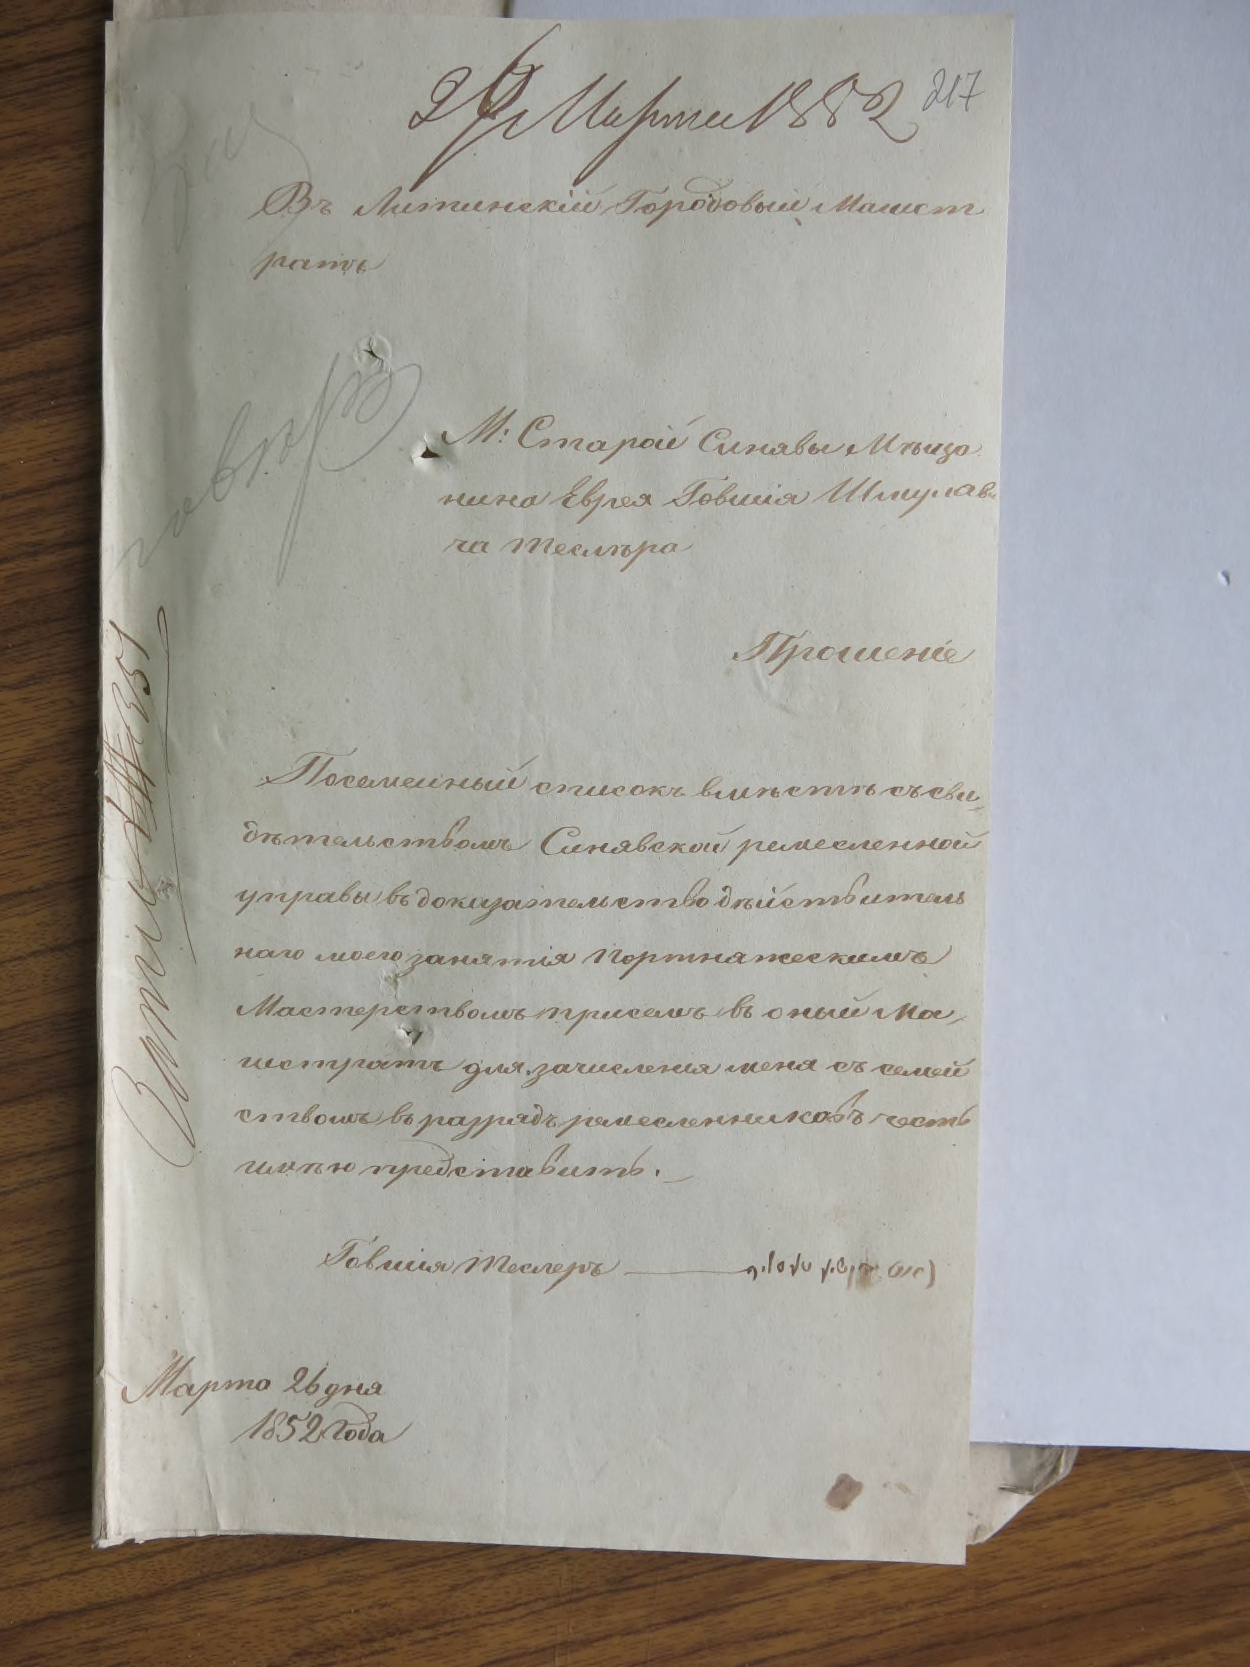 26 Марта 1852
217
Въ Литинскій Городовый Магист
ратъ
М: Старой Синявы Мѣща
нина Еврея Говшія Шмулеви
ча Теслѣра
Прошеніе
Посемейный списокъ вмѣстѣ съ сви-
дѣтельствомъ Синявской ремесленной
управы въ доказательство дѣйствитель
наго моего занятія портняжескимъ
Мастерствомъ присемъ въ оный Ма-
гистратъ для зачисленія меня съ семей
ствомъ въ разрядъ ремесленниковъ честь
имѣю представить.
Говшія Теслеръ
Марта 26 дня
1852 года